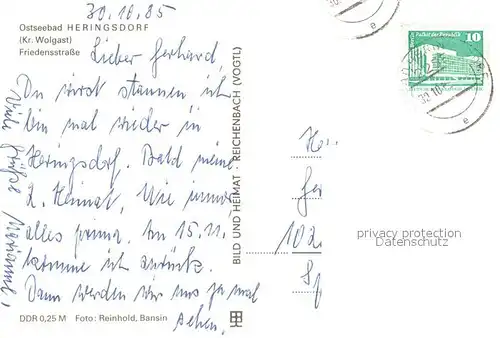 30.10.85
Ostseebad HERINGSDORF
(Kr. Wolgast)
Friedensstraße
Lieber Gerhard,
Du wirst staunen ich
bin mal wieder in
Heringsdorf. Bald meine
2. Heimat. Wie immer
alles prima. Am 15.11.
komme ich zurück.
Dann werden wir uns ja mal
sehen.
Viele Grüße
DDR 0,25 M Foto: Reinhold, Bansin
BILD UND HEIMAT · REICHENBACH (VOGTL)
Palast der Republik
10
30.10.
e
e
102
privacy protection
Datenschutz